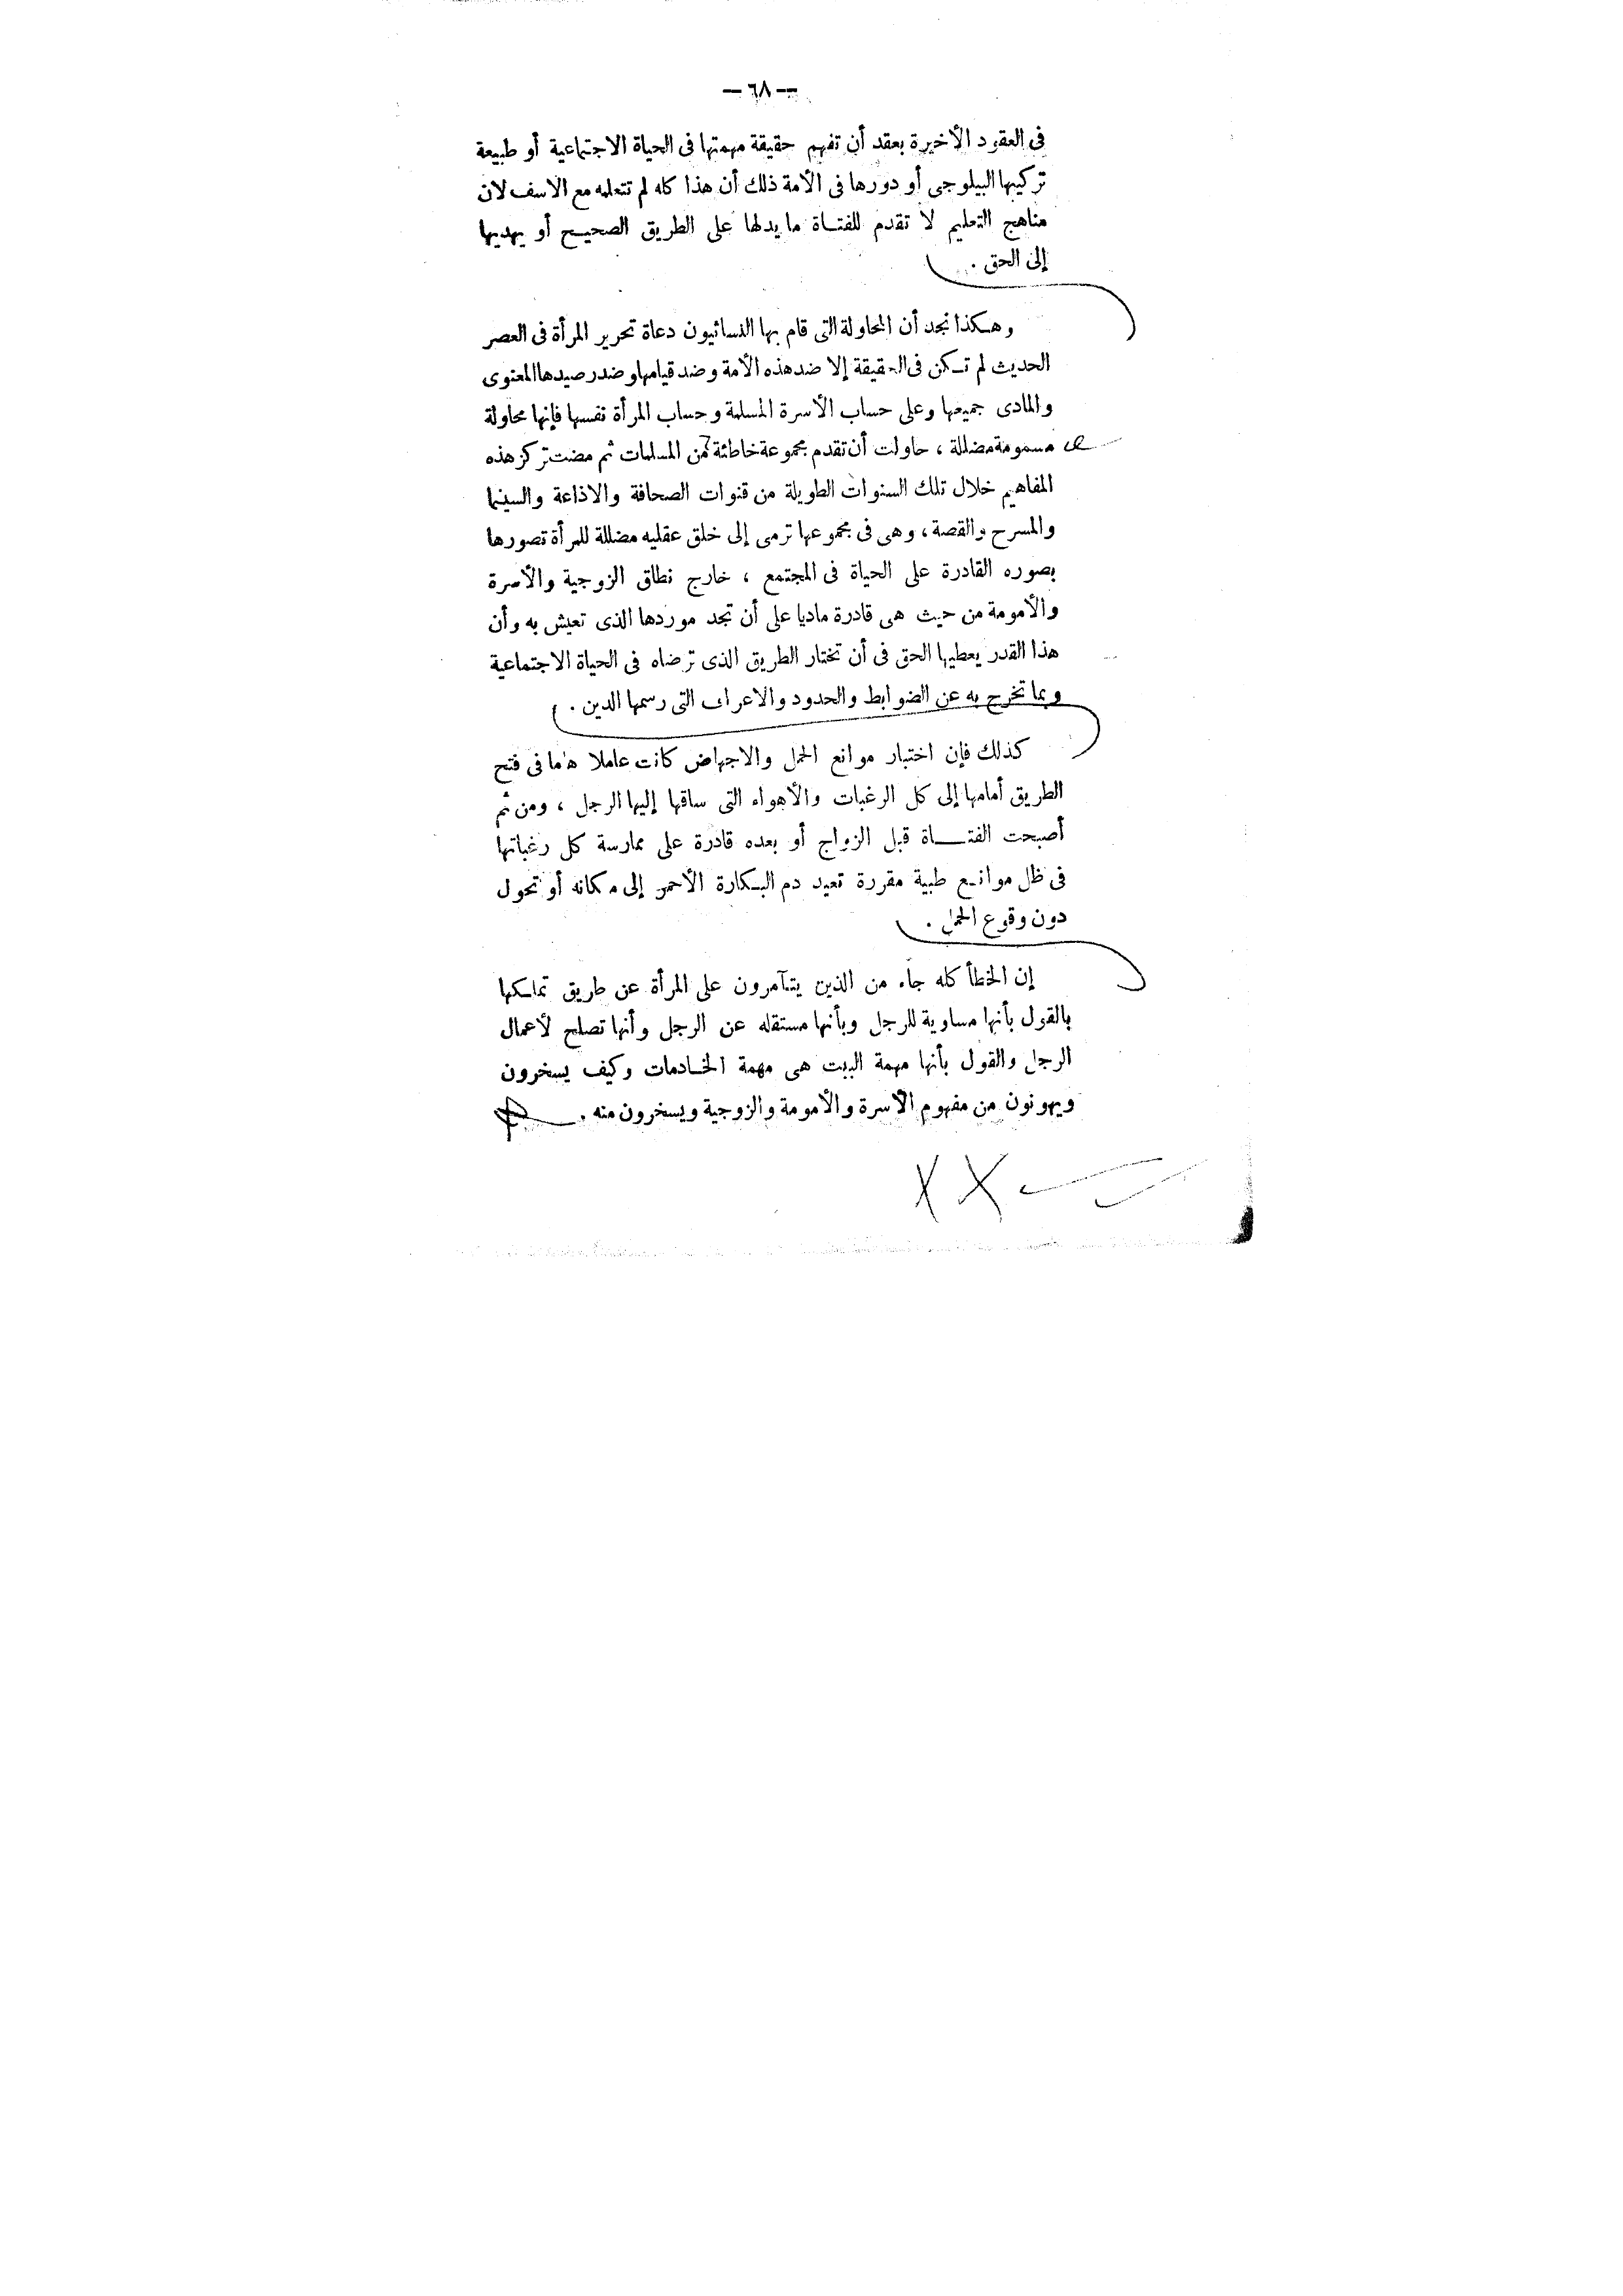 — ٦٨ —
فى العقود الأخيرة بعقد أن تفهم حقيقة مهمتها فى الحياة الاجتماعية أو طبيعة
تركيبها البيلوجى أو دورها فى الأمة ذلك أن هذا كله لم تتعلمه مع الاسف لان
مناهج التعليم لا تقدم للفتاة ما يدلها على الطريق الصحيح أو يهديها
إلى الحق .
وهكذا نجد أن المحاولة التى قام بها النسائيون دعاة تحرير المرأة فى العصر
الحديث لم تكن فى الحقيقة إلا ضد هذه الأمة وضد قيامها وضد رصيدها المعنوى
والمادى جميعها وعلى حساب الأسرة المسلمة وحساب المرأة نفسها فإنها محاولة
مسمومة مضللة ، حاولت أن تقدم مجموعة خاطئة من المسلمات ثم مضت تركز هذه
المفاهيم خلال تلك السنوات الطويلة من قنوات الصحافة والاذاعة والسينما
والمسرح والقصة ، وهى فى مجموعها ترمى إلى خلق عقليه مضللة للمرأة تصورها
بصوره القادرة على الحياة فى المجتمع ، خارج نطاق الزوجية والأسرة
والأمومة من حيث هى قادرة ماديا على أن تجد موردها الذى تعيش به وأن
هذا القدر يعطيها الحق فى أن تختار الطريق الذى ترضاه فى الحياة الاجتماعية
وبما تخرج به عن الضوابط والحدود والاعراف التى رسمها الدين .
كذلك فإن اختبار موانع الحمل والاجهاض كانت عاملا هاما فى فتح
الطريق أمامها إلى كل الرغبات والأهواء التى ساقها إليها الرجل ، ومن ثم
أصبحت الفتاة قبل الزواج أو بعده قادرة على ممارسة كل رغباتها
فى ظل موانع طبية مقررة تعيد دم البكارة الأحمر إلى مكانه أو تحول
دون وقوع الحمل .
إن الخطأ كله جاء من الذين يتآمرون على المرأة عن طريق تماسكها
بالقول بأنها مساوية للرجل وبأنها مستقله عن الرجل وأنها تصلح لأعمال
الرجل والقول بأنها مهمة البيت هى مهمة الخادمات وكيف يسخرون
ويهونون من مفهوم الأسرة والأمومة والزوجية ويسخرون منه .